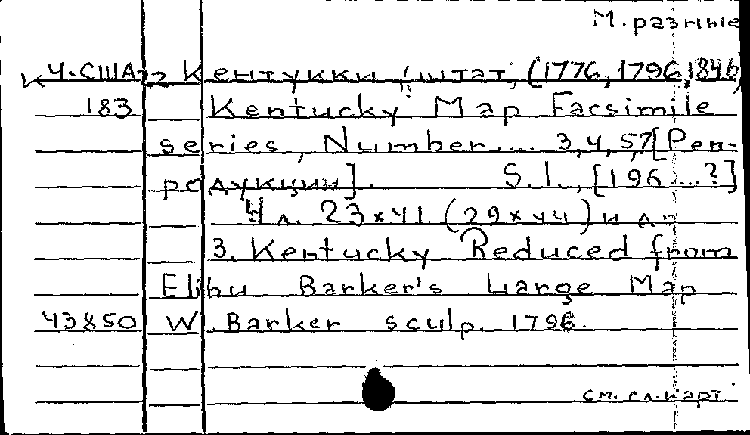 М. разные
К 4. США22 Кентукки, штат, (1776, 1796, 1846)
183 Kentucky Map Facsimile
series, Number... 3,4,5,7 [Реп-
родукции]. S.l., [196...?]
4 л. 23×41 (29×44) и др
3. Kentucky Reduced from
Elihu Barker's Large Map
43850 W. Barker sculp. 1796.
см. сл. карт.